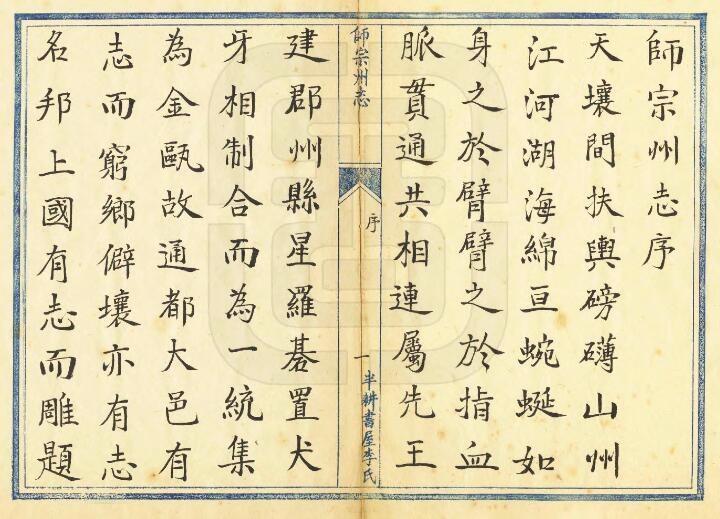 師宗州志序
天壤間扶輿磅礴山州
江河湖海綿亘蜿蜒如
身之於臂臂之於指血
脈貫通共相連屬先王
師宗州志
序
一
半耕書屋李氏
建郡州縣星羅碁置犬
牙相制合而為一統集
為金甌故通都大邑有
志而窮鄉僻壤亦有志
名邦上國有志而雕題